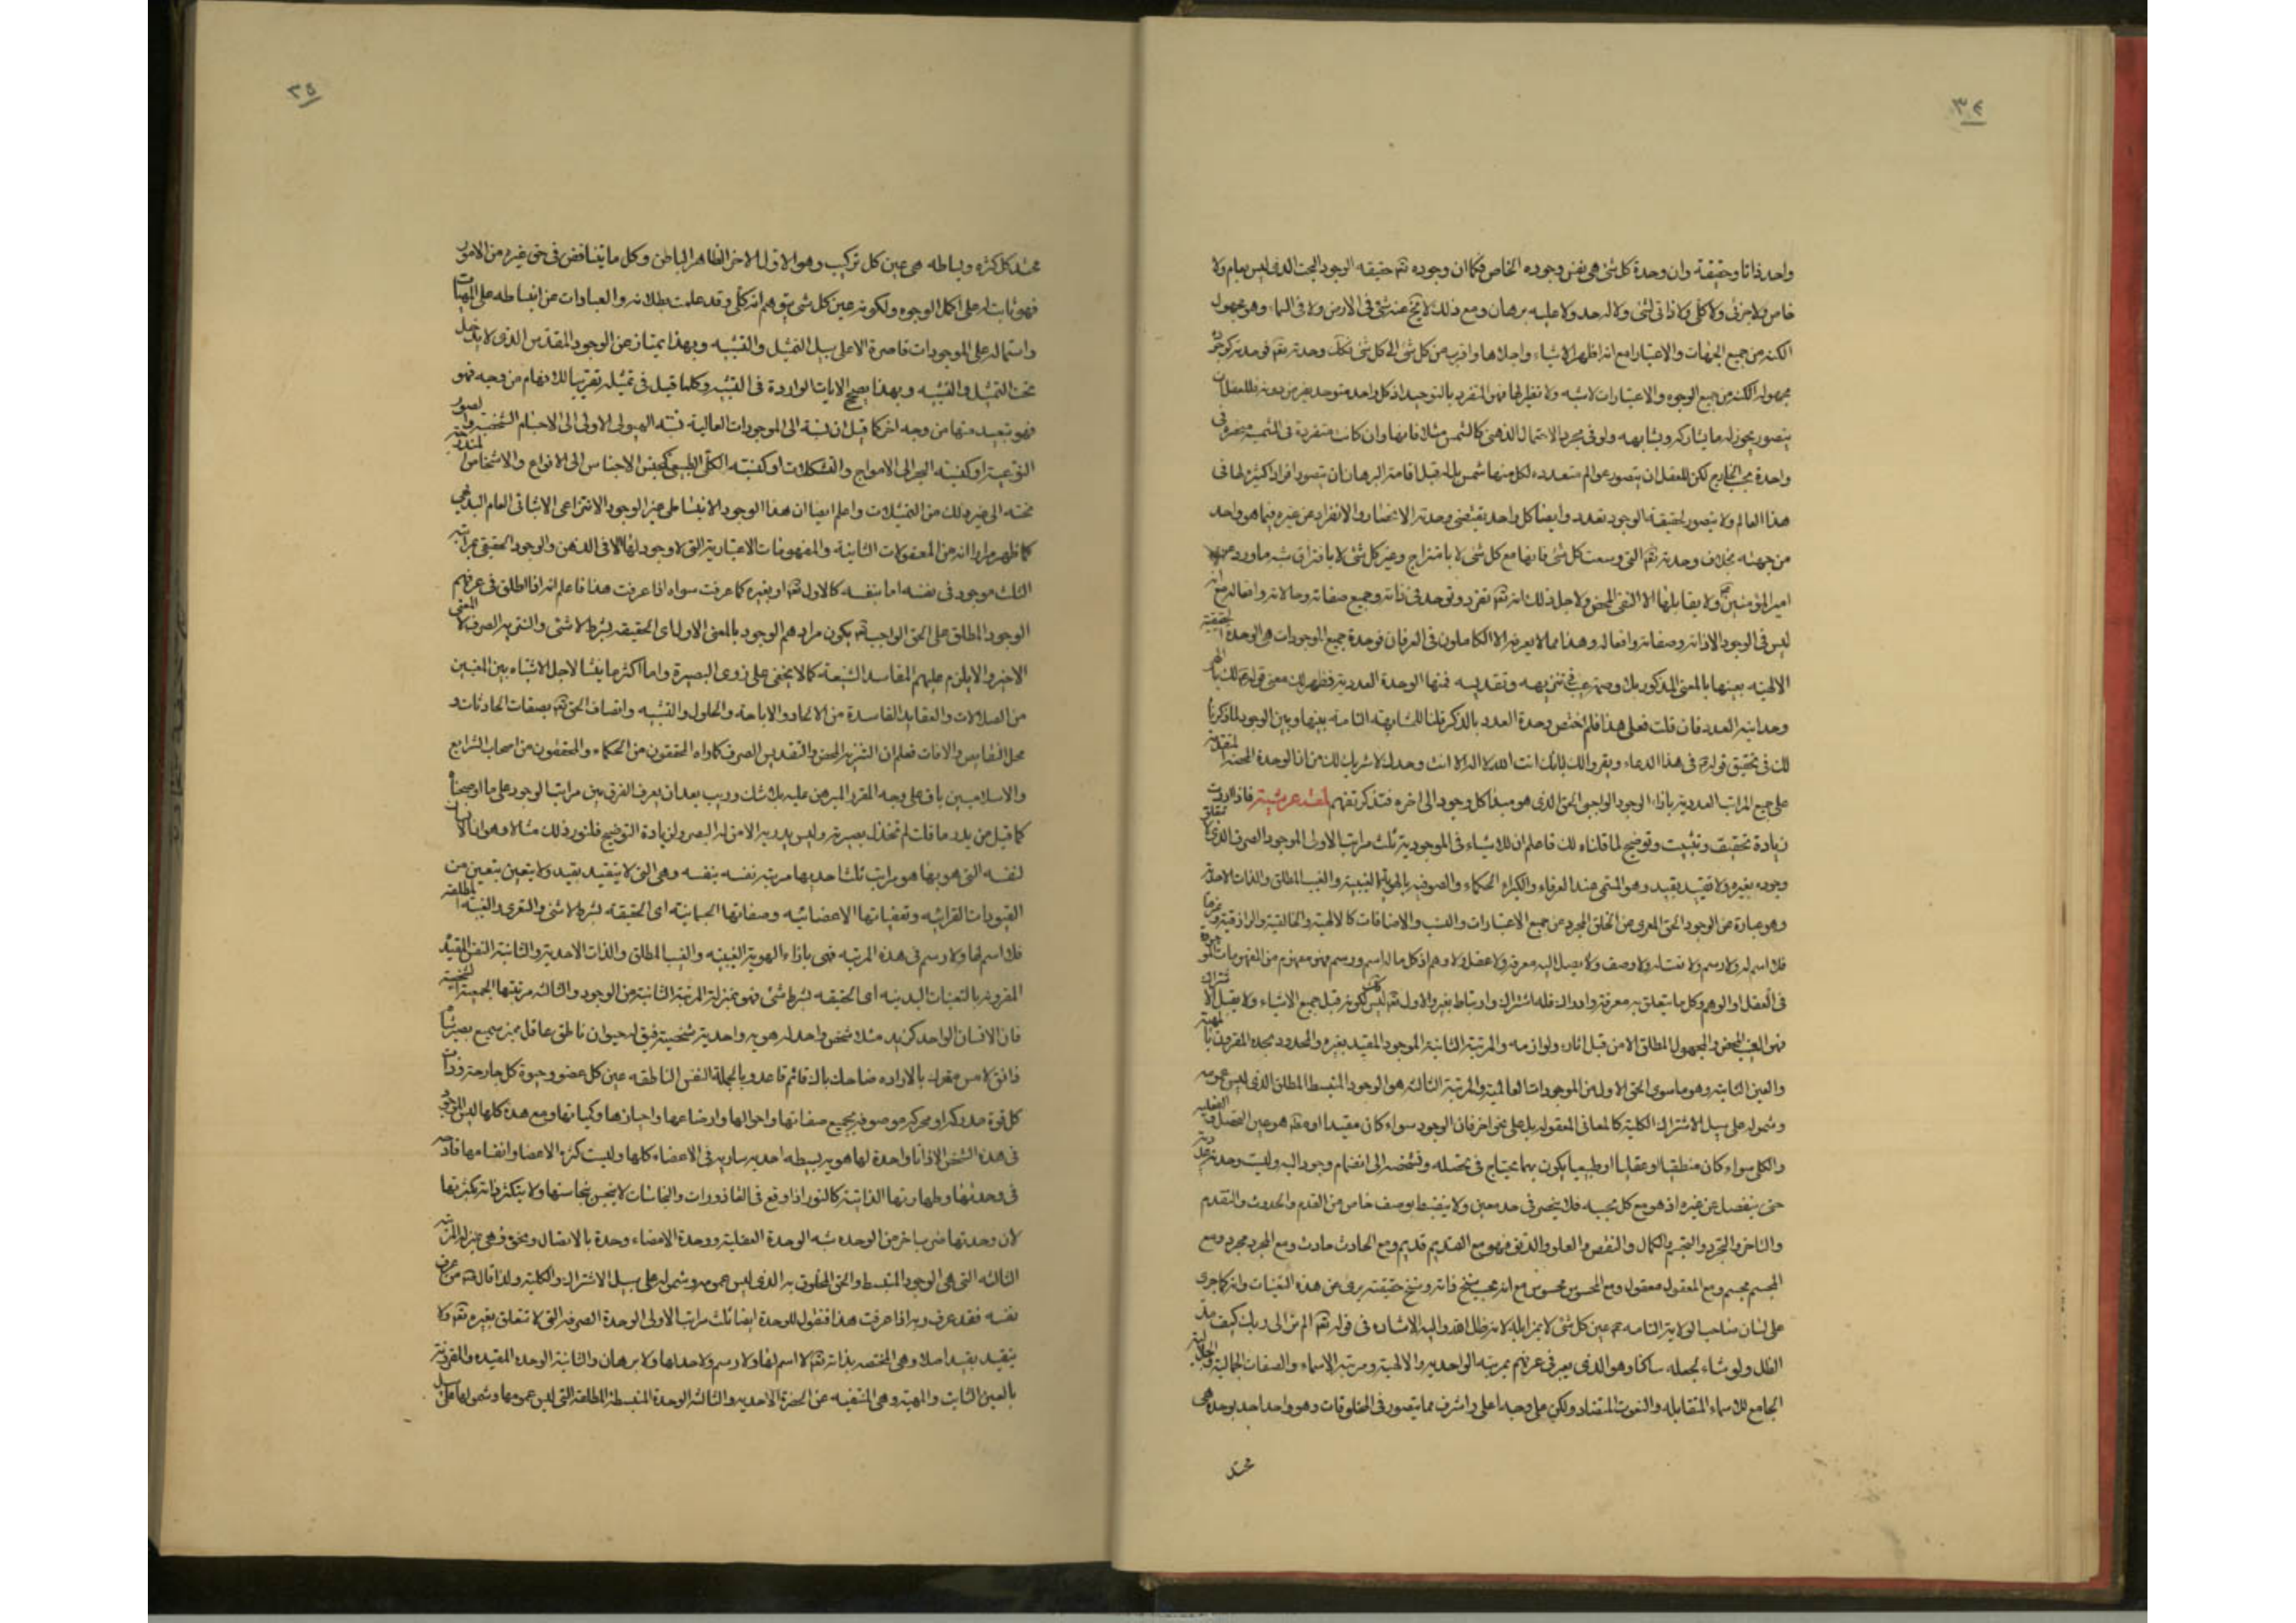 ٣٤
واحد ذاتا وحقيقة وان وحدة كل شئ هى نفس وجوده الخاص فكما ان وجوده تع حقيقه الوجود البحت الذى ليس بعام ولا
خاص ولا جزئى ولا كلى ولا ذاتى لشئ ولا له حد ولا عليه برهان ومع ذلك لا يخ عنه شئ فى الارض ولا فى السماء وهو مجهول
الكنه من جميع الجهات والاعتبارات مع انه اظهر الاشياء واجلاها واقرب من كل شئ الى كل شئ فكك وحدته تع
مجهولة الكنه من جميع الوجوه والاعتبارات لا شبه ولا نظير لها فهو المتفرد بالتوحيد اذ كل واحد متوحد بغيره من دونه فللعقل ان
يتصور بحوزه له ما يشاركه ويشابهه ولو فى مجرد الاحتمال الذهنى كالشمس مثلا فانها وان كانت متفردة فى الشمسيه منحصره فى
واحدة بحسب الخارج لكن للعقل ان يتصور عوالم متعدده لكل منها شمس بل له قبل اقامة البرهان ان يتصور افرادا كثيره لها فى
هذا العالم ولا يتصور لحقيقة الوجود تعدد وايضا كل واحد يقتضى وحدته الانحصار والانفراد عن غيره فيما هو واحد
من جهته بخلاف وحدته تع التى وسعت كل شئ فانها مع كل شئ لا بامتزاج وغير كل شئ لا بافتراق شبه ما ورد عن
امير المؤمنين ع ولا يقابلها الا النفى المحض ولاجل ذلك انه تع تفرد وتوحد فى ذاته وجميع صفاته وحالاته وافعاله مع انه
ليس فى الوجود الا ذاته وصفاته وافعاله وهذا مما لا يعرفه الا الكاملون فى العرفان فوحدة جميع الموجودات هى الوحدة الحقيقية
الالهيه بعينها بالمعنى المذكور بلا وصمة عيب فى تنزيهه وتقديسه فمنها الوحدة العددية فظهر لك معنى قوله ع لك يا الهى
وحدانية العدد فان قلت فعلى هذا فلم اختص وحدة العدد بالذكر قلنا للمشابهة التامة بينها وبين الوجود لما ذكرنا
لك فى تحقيق قوله ع فى هذا الدعاء ويقروا لك بانك انت الله لا اله الا انت وحدك لا شريك لك من ان الوحدة المحضة المتقدمة
على جميع المراتب العددية بازاء الوجود الواجبى الحق الذى هو مبدأ كل وجود الى اخره فتذكر تفهم لمعة عرشية فاذا اردت
زيادة تحقيق وتثبيت وتوضيح لما قلناه لك فاعلم ان للاشياء فى الموجودية ثلث مراتب الاولى الموجود الصرف الذى لا يتعلق
وجوده بغيره ولا يتقيد بقيد وهو المسمى عند العرفاء والكبراء الحكماء والصوفيه بالهوية الغيبية والغيب المطلق والذات الاحدية
وهو عبارة عن الوجود الحق المعرى عن الخلق المجرد عن جميع الاعتبارات والنسب والاضافات كالالهية والخالقية والرازقية وغيرها
فلا اسم له ولا رسم ولا نعت له ولا وصف ولا يصل اليه معرفة ولا عقل ولا وهم اذ كل ما له اسم ورسم فهو مفهوم من المفهومات الموجودة
فى العقل او الوهم وكل ما يتعلق به معرفة وادراك فله اشتراك وارتباط بغيره والاول تع ليس كك لكونه قبل جميع الاشياء ولا يقبل الاشتراك
فهو الغيب المحض والمجهول المطلق الا من قبل اثاره ولوازمه والمرتبة الثانية الموجود المقيد بغيره والمحدود بحده المقرون بالمهية
والعين الثابتة وهو ما سوى الحق الاول من الموجودات العالمية والمرتبة الثالثة هو الوجود المنبسط المطلق الذى ليس عمومه
وشموله على سبيل الاشتراك الكلية كالمعانى المعقوله بل على نحو اخر فان الوجود سواء كان مقيدا او مط هو عين التحصل والفعلية
والكلى سواء كان منطقيا او عقليا او طبيعيا يكون بهما يحتاج فى تحصله وتشخصه الى انضمام وجود اليه وليست وحدته عددية
حتى ينفصل عن غيره اذ هو مع كل بحسبه فلا ينحصر فى حد معين ولا ينضبط بوصف خاص من القدم والحدوث والتقدم
والتاخر والتجرد والتجسم والكمال والنقص والعلو والدنو فهو مع القديم قديم ومع الحادث حادث ومع المجرد مجرد ومع
المجسم مجسم ومع المعقول معقول ومع المحسوس محسوس مع انه بحسب سنخ ذاته وسنخ حقيقته برئ عن هذه التعينات وانه كما جرى
على لسان صاحب الولاية التامه ع مع عين كل شئ لا بمزايلة لانه ظل الله واليه الاشاره فى قوله تع الم تر الى ربك كيف مد
الظل ولو شاء لجعله ساكنا وهو الذى يعبر فى عرفهم بمرتبه الواحديه والالهية ومرتبه الاسماء والصفات الجمالية والجلالية
الجامع للاسماء المتقابله والنعوت المتضاد ولكن على وجه اعلى واشرف مما يتصور فى المخلوقات وهو واحد احد بوحدة هى
محتد
٣٥
محتد كل كثره وبساطه هى عين كل تركيب وهو الاول الاخر الظاهر الباطن وكل ما يتناقض فى حق غيره من الامور
فهو ثابت له على اكمل الوجوه ولكونه عين كل شئ يتوهم انه كلى وقد علمت بطلانه والعبارات عن انبساطه على المهيات
واشتماله على الموجودات قاصرة الا على سبيل التمثيل والتشبيه وبهذا يمتاز عن الوجود المقدس الذى لا يدخل
تحت التمثيل والتشبيه وبهذا يصح الايات الواردة فى التشبيه وكلما قيل فى تمثيله تقريبا للافهام من وجه فهو
فهو تبعيد منها من وجه اخر كما قيل ان نسبة الى الموجودات العالمية نسبه الهيولى الاولى الى الاجسام الشخصية والصور
النوعية او كنسبه البحر الى الامواج والتشكلات او كنسبه الكلى الطبيعى كجنس الاجناس الى الانواع والاشخاص المندرجة
تحته الى غير ذلك من التمثيلات واعلم ايضا ان هذا الوجود الانبساطى غير الوجود الانتزاعى الاثباتى العام البديهى
كما ظهر مرارا انه من المعقولات الثانية والمفهومات الاعتبارية التى لا وجود لها الا فى الذهن والوجود الحقيقى بمراتبه
الثلث موجود فى نفسه اما بنفسه كالاول تع او بغيره كما عرفت سواه اذا عرفت هذا فاعلم انه اذا اطلق فى عرفهم
الوجود المطلق على الحق الواجب تع يكون مرادهم الوجود بالمعنى الاول اى الحقيقه بشرط لا شئ والتنزيه الصرف لا المعنى
الاخير والا يلزم عليهم المفاسد الشنيعة كما لا يخفى على ذوى البصيرة واما اكثر ما ينشا لاجل الاشتباه بين المعنيين
من الضلالات والعقايد الفاسدة من الالحاد والاباحة والحلول والتشبيه واتصاف الحق تع بصفات الحادثات و
محل النقايص والافات فعلم ان التنزيه المحض والتقديس الصرف كما راه المحققون من الحكماء والمحققون من اصحاب الشرايع
والاسلاميين باق على وجه المقرر المبرهن عليه بلا شك وريب بعد ان يعرف الفرق بين مراتب الوجود على ما اوضحناه
كما قيل من يدر ما قلت لم تخذل بصيرته وليس يدريه الا من له البصر ولزيادة التوضيح فلنورد لك مثالا وهو ان الانسان
لنفسه التى هو بها هو مراتب ثلث احديها مرتبه نفسه بنفسه وهى التى لا يتقيد بقيد ولا يتعين بتعين من
القيودات القرابيه وتعينياتها الاعضائيه وصفاتها الجسمانية اى الحقيقه بشرط لا شئ والتعرى والغيبه المطلقه
فلا اسم لها ولا رسم فى هذه المرتبه فهى بازاء الهوية الغيبيه والغيب المطلق والذات الاحدية والثانية النفس المقيده
المقرونه بالتعينات البدنيه اى الحقيقه بشرط شئ فهو بمنزلة المرتبة الثانية من الوجود والثالثه مرتبتها الجمعية الشخصية
فان الانسان الواحد كزيد مثلا شخص واحد له هويه واحدية شخصية فيق له حيوان ناطق عاقل مميز سميع بصير شام
ذائق لامس متحرك بالاراده ضاحك باك قائم قاعد وبالجملة النفس الناطقه عين كل عضو وحيوة كل جارحة وذات
كل قوة مدركه او محركه موصوفه بجميع صفاتها واحوالها واوضاعها واحيازها وكيفياتها ومع هذه كلها ليس الموجود
فى هذه الشخص الا ذاتا واحدة لها هويه بسيطه احديه ساريه فى الاعضاء كلها وليست كثرة الاعضا وانقسامها قادحه
فى وحدتها وطهارتها الذاتية كالنور اذا وقع فى القاذورات والخباثات لا ينجس بنجاستها ولا يتكثر ذاته بكثرتها
لان وحدتها ضرب اخر من الوحده شبه الوحدة العقلية ووحدة الاعضاء وحدة بالاتصال ونحوه فهى بمنزله المرتبه
الثالثه التى هى الوجود المنبسط والحق المخلوق به الذى ليس عمومه وشموله على سبيل الاشتراك والكلية ولذا قال ع من عرف
نفسه فقد عرف ربه اذا عرفت هذا فنقول للوحدة ايضا ثلث مراتب الاولى الوحدة الصرفه التى لا تتعلق بغيره تع ولا
يتقيد بقيد اصلا وهى المختصه بذاته تع لا اسم لها ولا رسم ولا حد لها ولا برهان والثانية الوحده المقيده والمقرونه
بالعين الثابت والمهية وهى المنتفيه عن الحضرة الاحديه والثالثه الوحدة المنبسطة المطلقه التى ليس عمومها وشمولها على سبيل